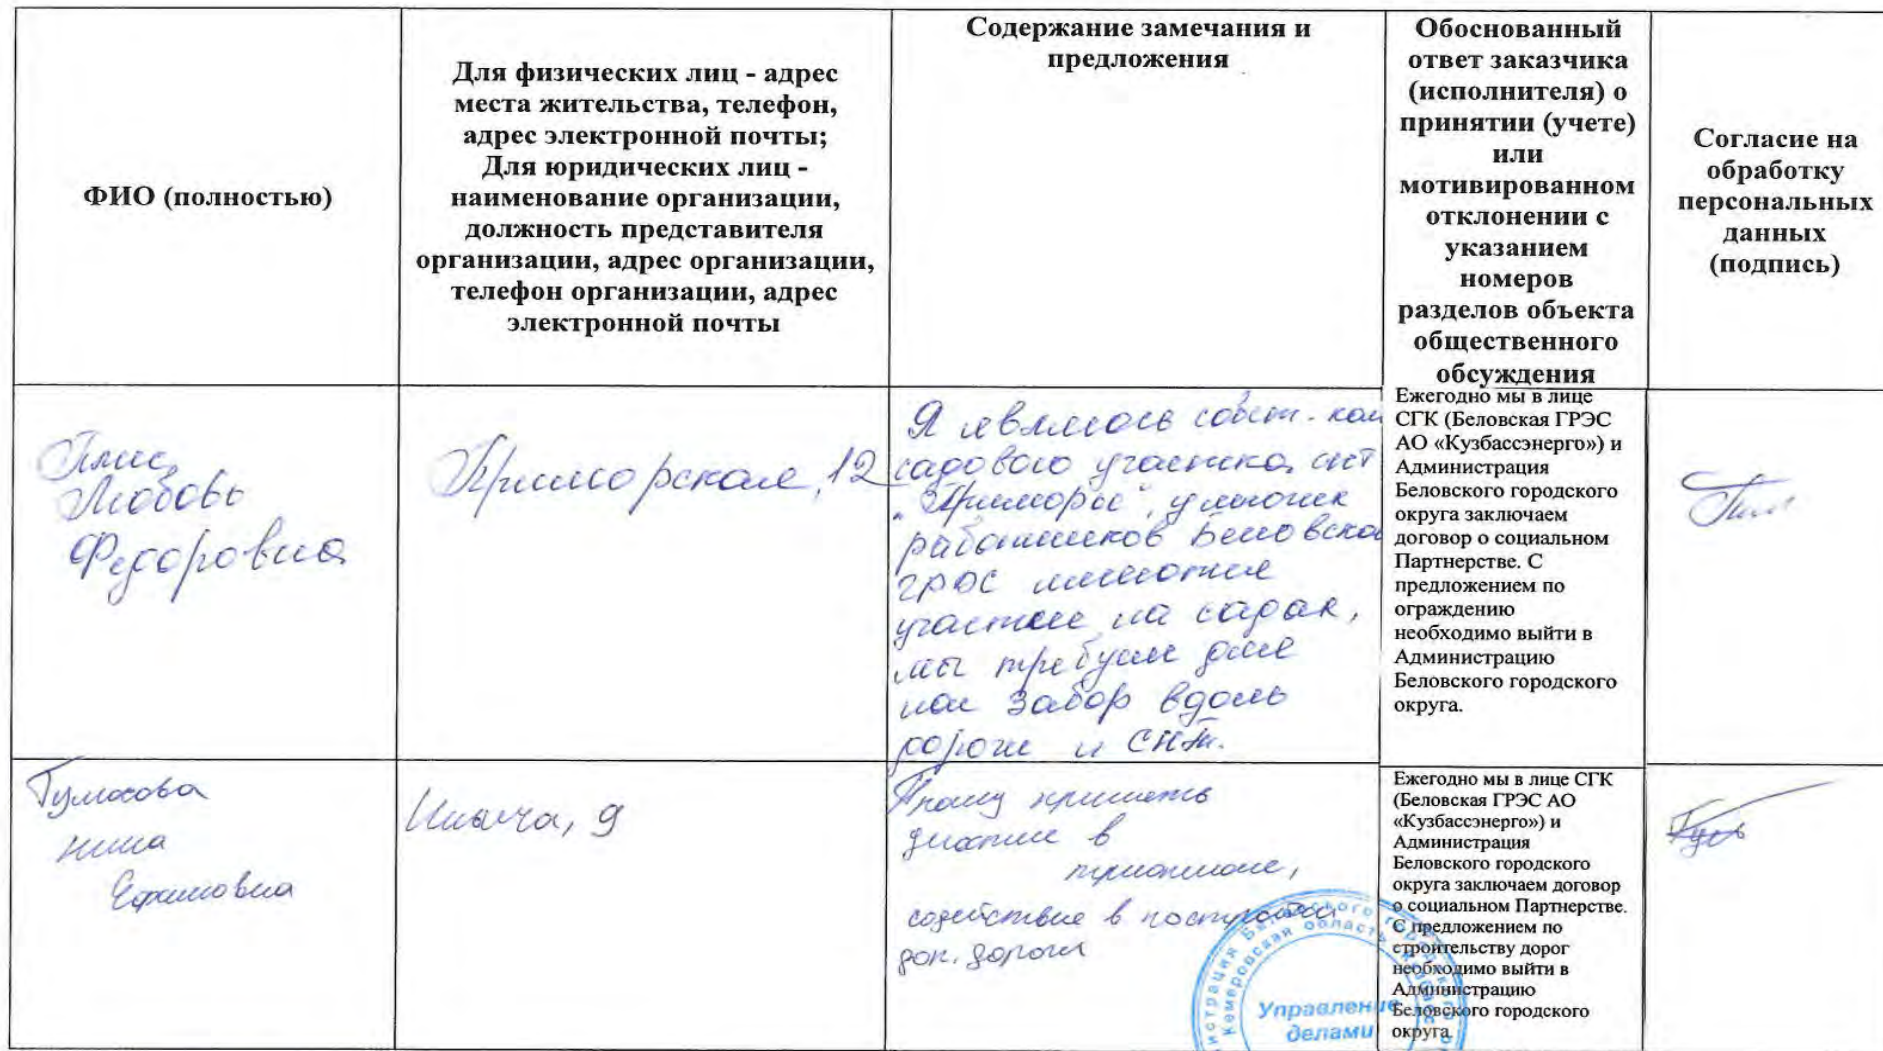 ФИО (полностью)
Для физических лиц - адрес
места жительства, телефон,
адрес электронной почты;
Для юридических лиц -
наименование организации,
должность представителя
организации, адрес организации,
телефон организации, адрес
электронной почты
Содержание замечания и
предложения
Обоснованный
ответ заказчика
(исполнителя) о
принятии (учете)
или
мотивированном
отклонении с
указанием
номеров
разделов объекта
общественного
обсуждения
Согласие на
обработку
персональных
данных
(подпись)
Плис
Любовь
Федоровна
Приморская, 12
Я являюсь собст-ком
садового участка, снт
"Приморье", у многих
работников Беловской
ГРЭС имеются
участки на садах,
мы требуем для
нас забор вдоль
дороги и СНТ.
Ежегодно мы в лице
СГК (Беловская ГРЭС
АО «Кузбассэнерго») и
Администрация
Беловского городского
округа заключаем
договор о социальном
Партнерстве. С
предложением по
ограждению
необходимо выйти в
Администрацию
Беловского городского
округа.
Нина
Ефимовна
Ильича, 9
Прошу принять
участие в
содействие в постройки
доп. дороги
Ежегодно мы в лице СГК
(Беловская ГРЭС АО
«Кузбассэнерго») и
Администрация
Беловского городского
округа заключаем договор
о социальном Партнерстве.
С предложением по
строительству дорог
необходимо выйти в
Администрацию
Беловского городского
округа.
Кемеровская область
Управление
делами